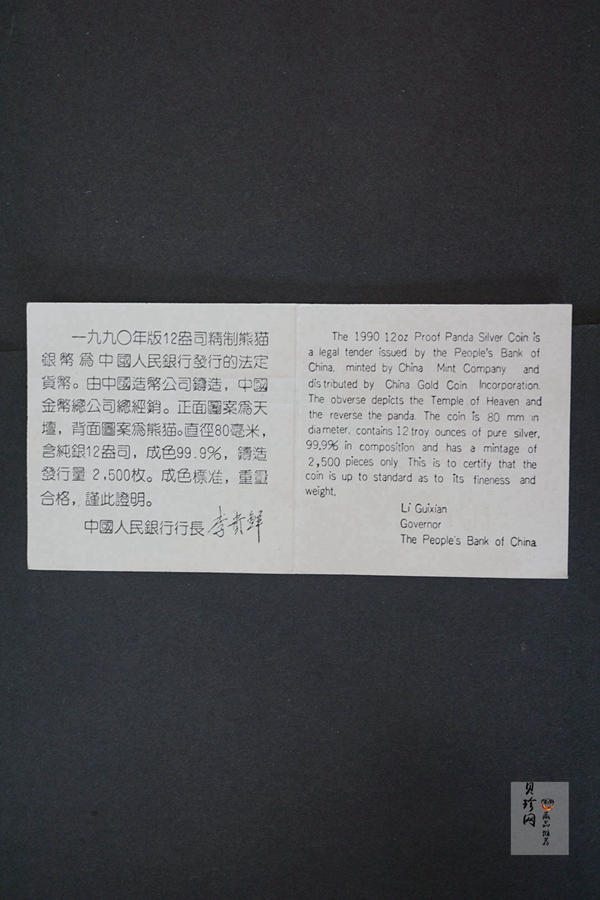 一九九〇年版12盎司精制熊猫
銀幣爲中國人民銀行發行的法定
貨幣。由中國造幣公司鑄造，中國
金幣總公司總經銷。正面圖案爲天
壇，背面圖案爲熊猫。直徑80毫米，
含純銀12盎司，成色99.9%，鑄造
發行量 2,500枚。成色標准，重量
合格，謹此證明。
中國人民銀行行長 李貴鲜
The 1990 12oz Proof Panda Silver Coin is
a legal tender issued by the People's Bank of
China, minted by China Mint Company and
distributed by China Gold Coin Incorporation.
The obverse depicts the Temple of Heaven and
the reverse the panda. The coin is 80 mm in
diameter, contains 12 troy ounces of pure silver,
99.9% in composition and has a mintage of
2,500 pieces only. This is to certify that the
coin is up to standard as to its fineness and
weight.
Li Guixian
Governor
The People's Bank of China
贝珍网
藏品推荐